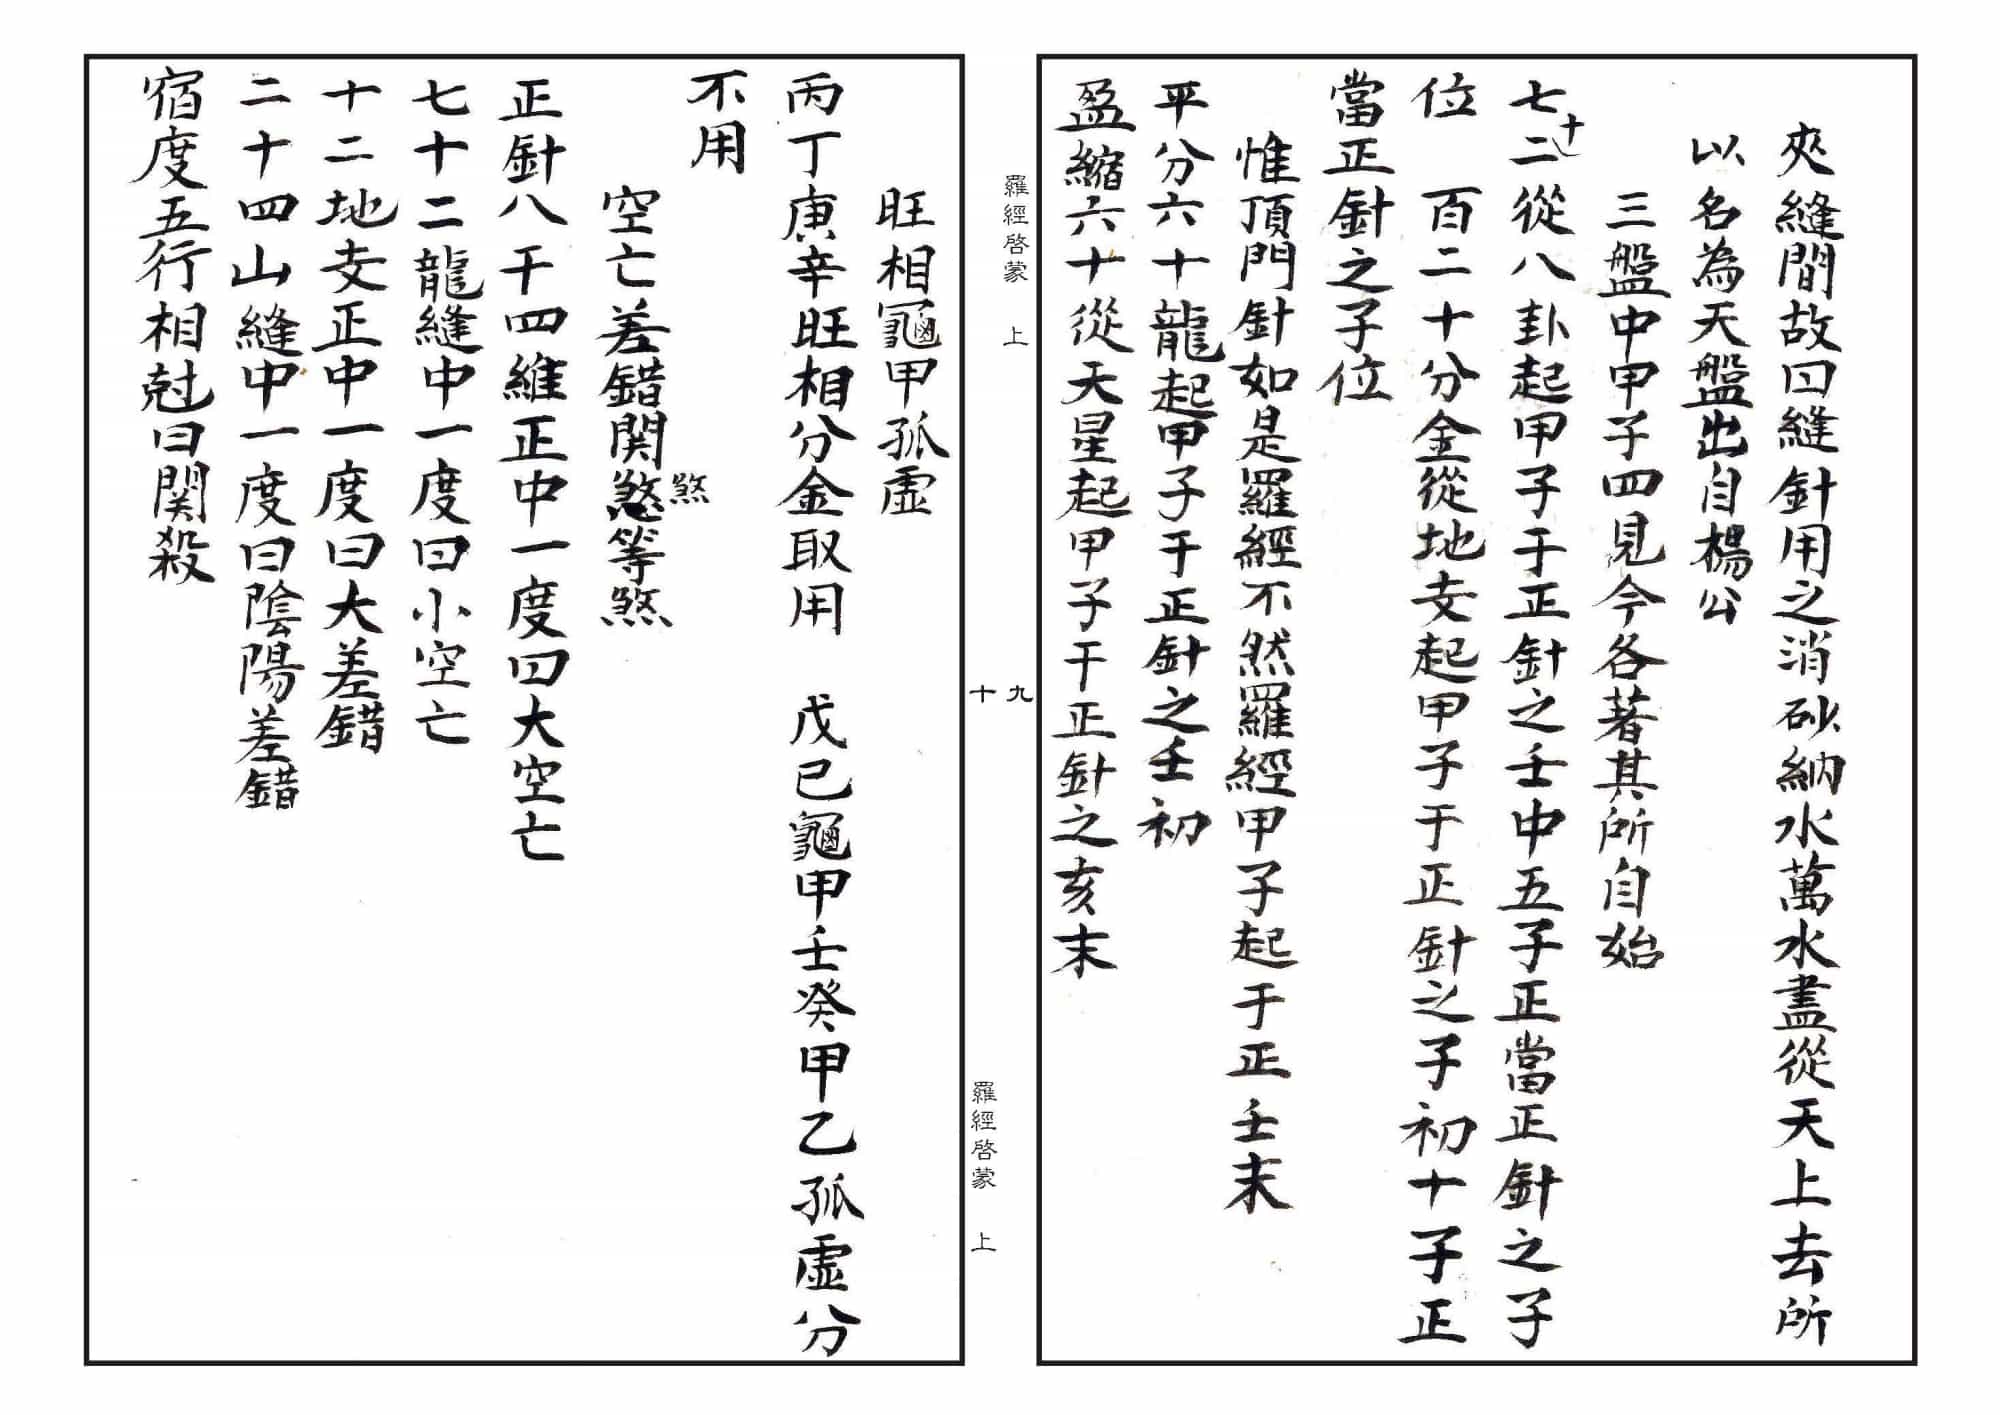 夾縫間故曰縫針用之消砂納水萬水盡從天上去所
以名為天盤出自楊公
三盤中甲子四見今各著其所自始
七十二從八卦起甲子于正針之壬中五子正當正針之子
位 百二十分金從地支起甲子于正針之子初十子正
當正針之子位
惟頂門針如是羅經不然羅經甲子起于正壬末
平分六十龍起甲子于正針之壬初
盈縮六十從天星起甲子于正針之亥末
羅經啓蒙 上
九
十
羅經啓蒙 上
旺相龜甲孤虛
丙丁庚辛旺相分金取用 戊己龜甲壬癸甲乙孤虛分
不用
煞
空亡差錯関煞等煞
正針八干四維正中一度曰大空亡
七十二龍縫中一度曰小空亡
十二地支正中一度曰大差錯
二十四山縫中一度曰陰陽差錯
宿度五行相尅曰関殺